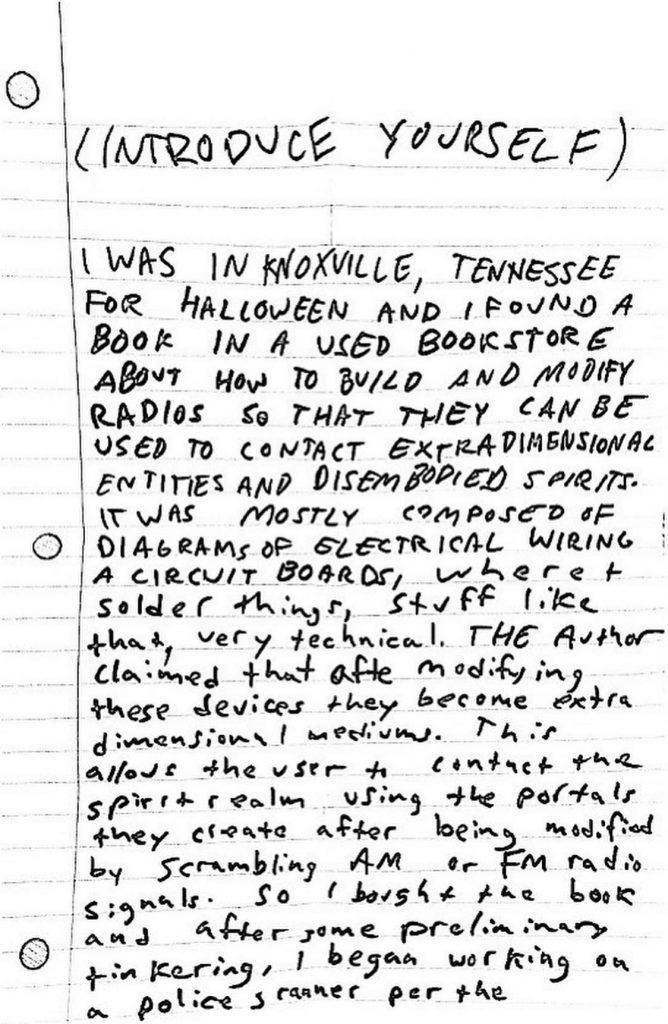 (INTRODUCE YOURSELF)
I WAS IN KNOXVILLE, TENNESSEE
FOR HALLOWEEN AND I FOUND A
BOOK IN A USED BOOKSTORE
ABOUT HOW TO BUILD AND MODIFY
RADIOS SO THAT THEY CAN BE
USED TO CONTACT EXTRADIMENSIONAL
ENTITIES AND DISEMBODIED SPIRITS.
IT WAS MOSTLY COMPOSED OF
DIAGRAMS OF ELECTRICAL WIRING
A CIRCUIT BOARDS, where t
solder things, stuff like
that, very technical. THE Author
claimed that afte modifying
these devices they become extra
dimensional mediums. This
allows the user to contact the
spirit realm using the portals
they create after being modified
by scrambling AM or FM radio
signals. So I bought the book
and after some preliminary
tinkering, I began working on
a police scanner per the